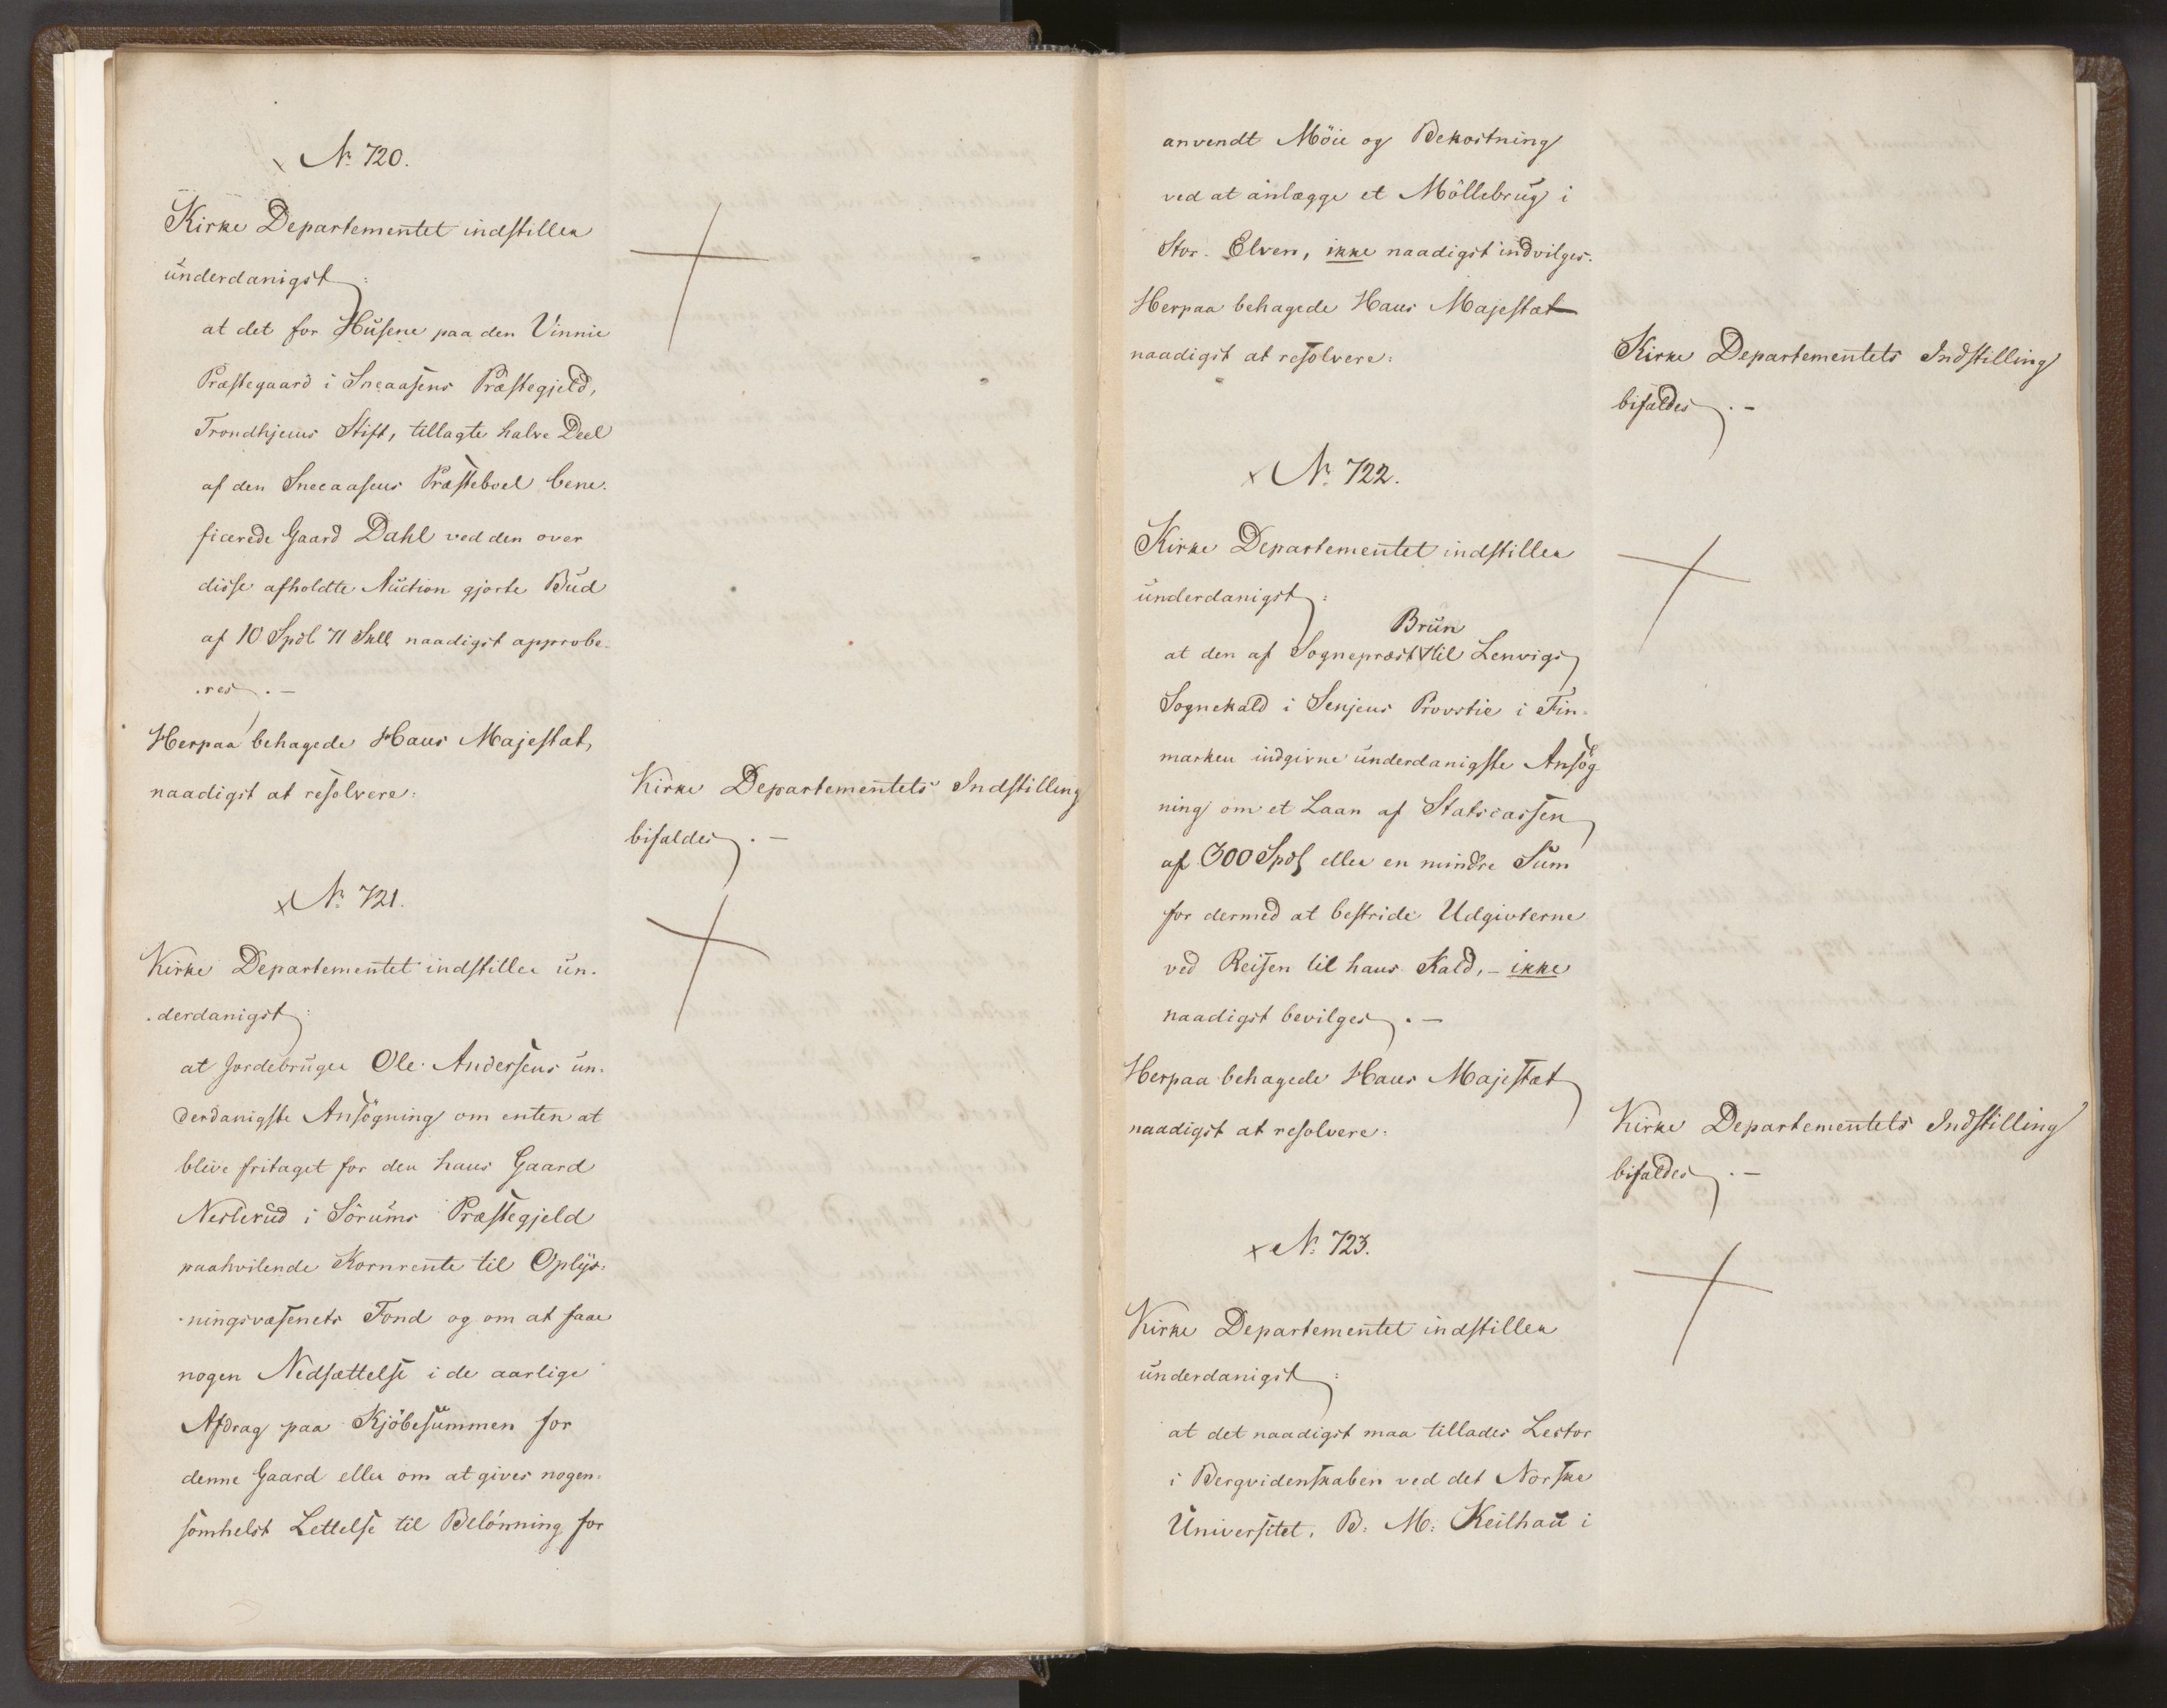 N: 720.
Kirke Departementet indstiller
underdanigst:
at det for Husene paa den Vinnie
Præstegaard i Sneaasens Præstegjeld,
Trondhjems Stift, tillagte halve Deel
af den Sneeaasens Præsteboel bene-
ficerede Gaard Dahl ved den over
disse afholdte Auction gjorte Bud
af 10 Spdl 71 Skll naadigst approbe-
res.-
Herpaa behagede Hans Majestæt,
naadigst at resolvere:
Kirke Departementets Indstilling
bifaldes.-
N: 721.
Kirke Departementet indstiller un-
derdanigst:
at Jordebruger Ole Andersens un-
derdanigste Ansögning om enten at
blive fritaget for den hans Gaard
Nerlerud i Sörums Præstegjeld
paahvilende Kornrente til Oplys-
ningsvæsenets Fond og om at faae
nogen Nedsættelse i de aarlige
Afdrag paa Kjöbesummen for
denne Gaard eller om at gives nogen-
somhelst Lettelse til Belönning for
anvendt Möie og Bekostning
ved at anlægge et Möllebrug i
Stor-Elven, ikke naadigst indvilges.
Herpaa behagede Hans Majestæt
naadigst at resolvere:
Kirke Departementets Indstilling
bifaldes.-
N: 722.
Kirke Departementet indstiller
underdanigst:
at den af Sognepræst Brun til Lenvigs
Sognekald i Senjens Provstie i Fin-
marken indgivne underdanigste Ansög-
ning om et Laan af Statscassen
af 300 Spdl eller en mindre Sum
for dermed at bestride Udgivterne
ved Reisen til hans Kald,- ikke
naadigst bevilges.-
Herpaa behagede Hans Majestæt
naadigst at resolvere:
Kirke Departementets Indstilling
bifaldes.-
N: 723.
Kirke Departementet indstiller
underdanigst:
at det naadigst maa tillades Lector
i Bergvidenskaben ved det Norske
Universitet, B: M: Keilhau i